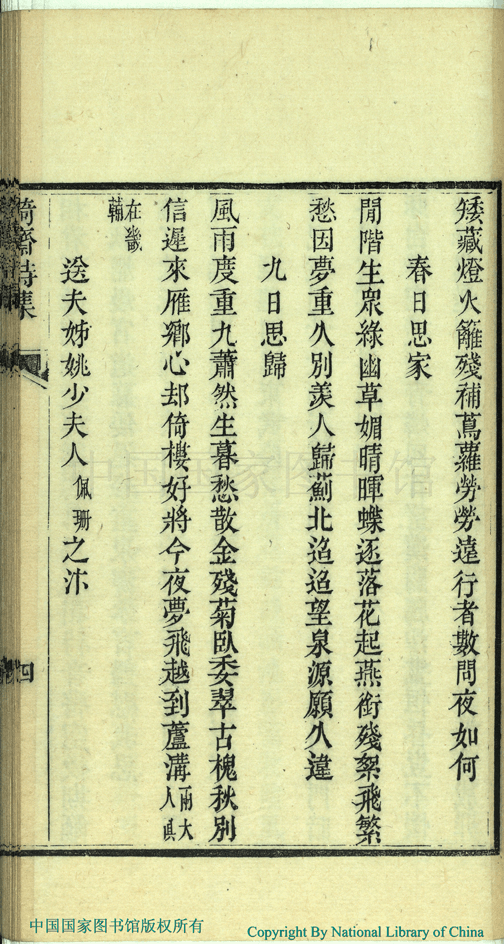 矮藏燈火籬殘補蔦蘿勞勞遠行者數問夜如何
春日思家
閒階生衆綠幽草媚晴暉蝶逐落花起燕銜殘絮飛繁
愁因夢重久別羨人歸薊北迢迢望泉源願久違
九日思歸
風雨度重九蕭然生暮愁散金殘菊臥委翠古槐秋別
信遲來雁鄉心却倚樓好將今夜夢飛越到蘆溝兩大人眞
在畿輔
送夫姊姚少夫人佩珊之汴
齋詩集
四
中国国家图书馆
中国国家图书馆版权所有
Copyright By National Library of China